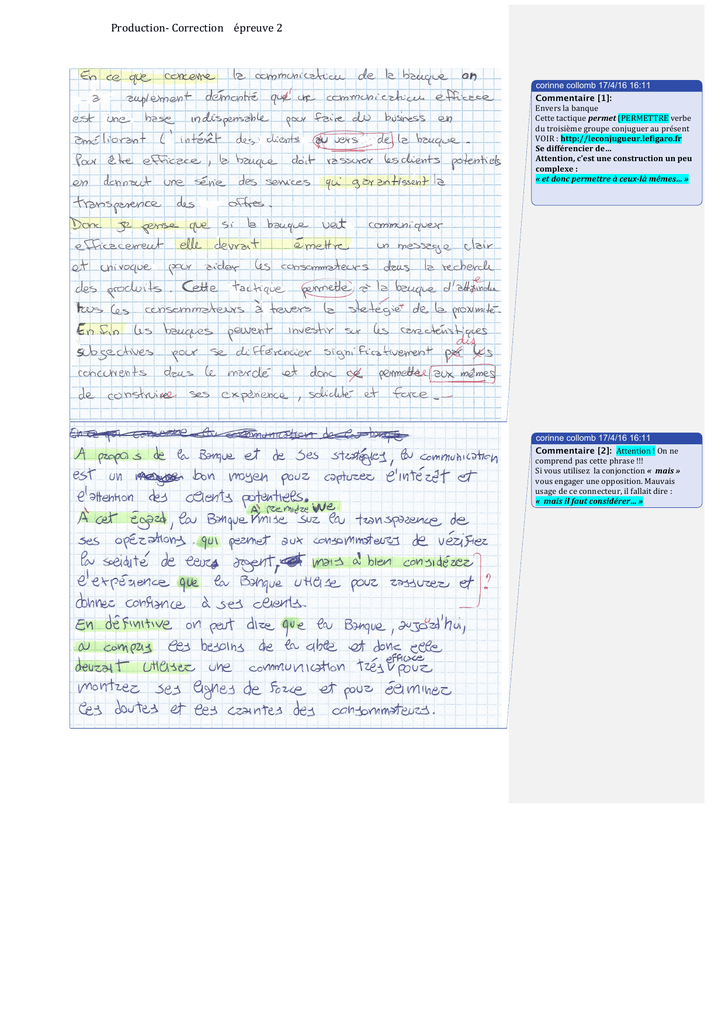 Production- Correction épreuve 2
En ce que concerne la communication de la banque on
a amplement démontré que une communication efficace
est une base indispensable pour faire du business en
améliorant l'intérêt des clients au vers de la banque.
Pour être efficace, la banque doit rassurer les clients potentiels
en donnant une série des services qui garantissent la
transparence des offres.
Donc je pense que si la banque veut communiquer
efficacement elle devrait émettre un message clair
et univoque pour aider les consommateurs dans la recherche
des produits. Cette tactique permette à la banque d'atteindre
tous les consommateurs à travers la stratégie de la proximité.
En fin les banques peuvent investir sur les caractéristiques
subjectives pour se différencier significativement par les
des
concurrents dans le marché et donc permettre aux mêmes
de construire ses expérience, solidité et force.
En ce qui concerne la communication de la banque
A propos de la Banque et de ses stratégies, la communication
est un bon moyen pour capturer l'intérêt et
l'attention des clients potentiels.
À cet égard, la Banque mise sur la transparence de
ses opérations qui permet aux consommateurs de vérifier
la solidité de leurs argent, mais à bien considérer
l'expérience que la Banque utilise pour rassurer et ?
donner confiance à ses clients.
En définitive on peut dire que la Banque, aujourd'hui,
a compris les besoins de la cible et donc elle
devrait utiliser une communication très efficace pour
montrer ses lignes de force et pour éliminer
les doutes et les craintes des consommateurs.
corinne collomb 17/4/16 16:11
Commentaire [1]:
Envers la banque
Cette tactique permet [PERMETTRE verbe
du troisième groupe conjuguer au présent
VOIR : http://leconjugueur.lefigaro.fr
Se différencier de…
Attention, c'est une construction un peu
complexe :
« et donc permettre à ceux-là mêmes… »
corinne collomb 17/4/16 16:11
Commentaire [2]: Attention ! On ne
comprend pas cette phrase !!!
Si vous utilisez la conjonction « mais »
vous engager une opposition. Mauvais
usage de ce connecteur, il fallait dire :
« mais il faut considérer… »